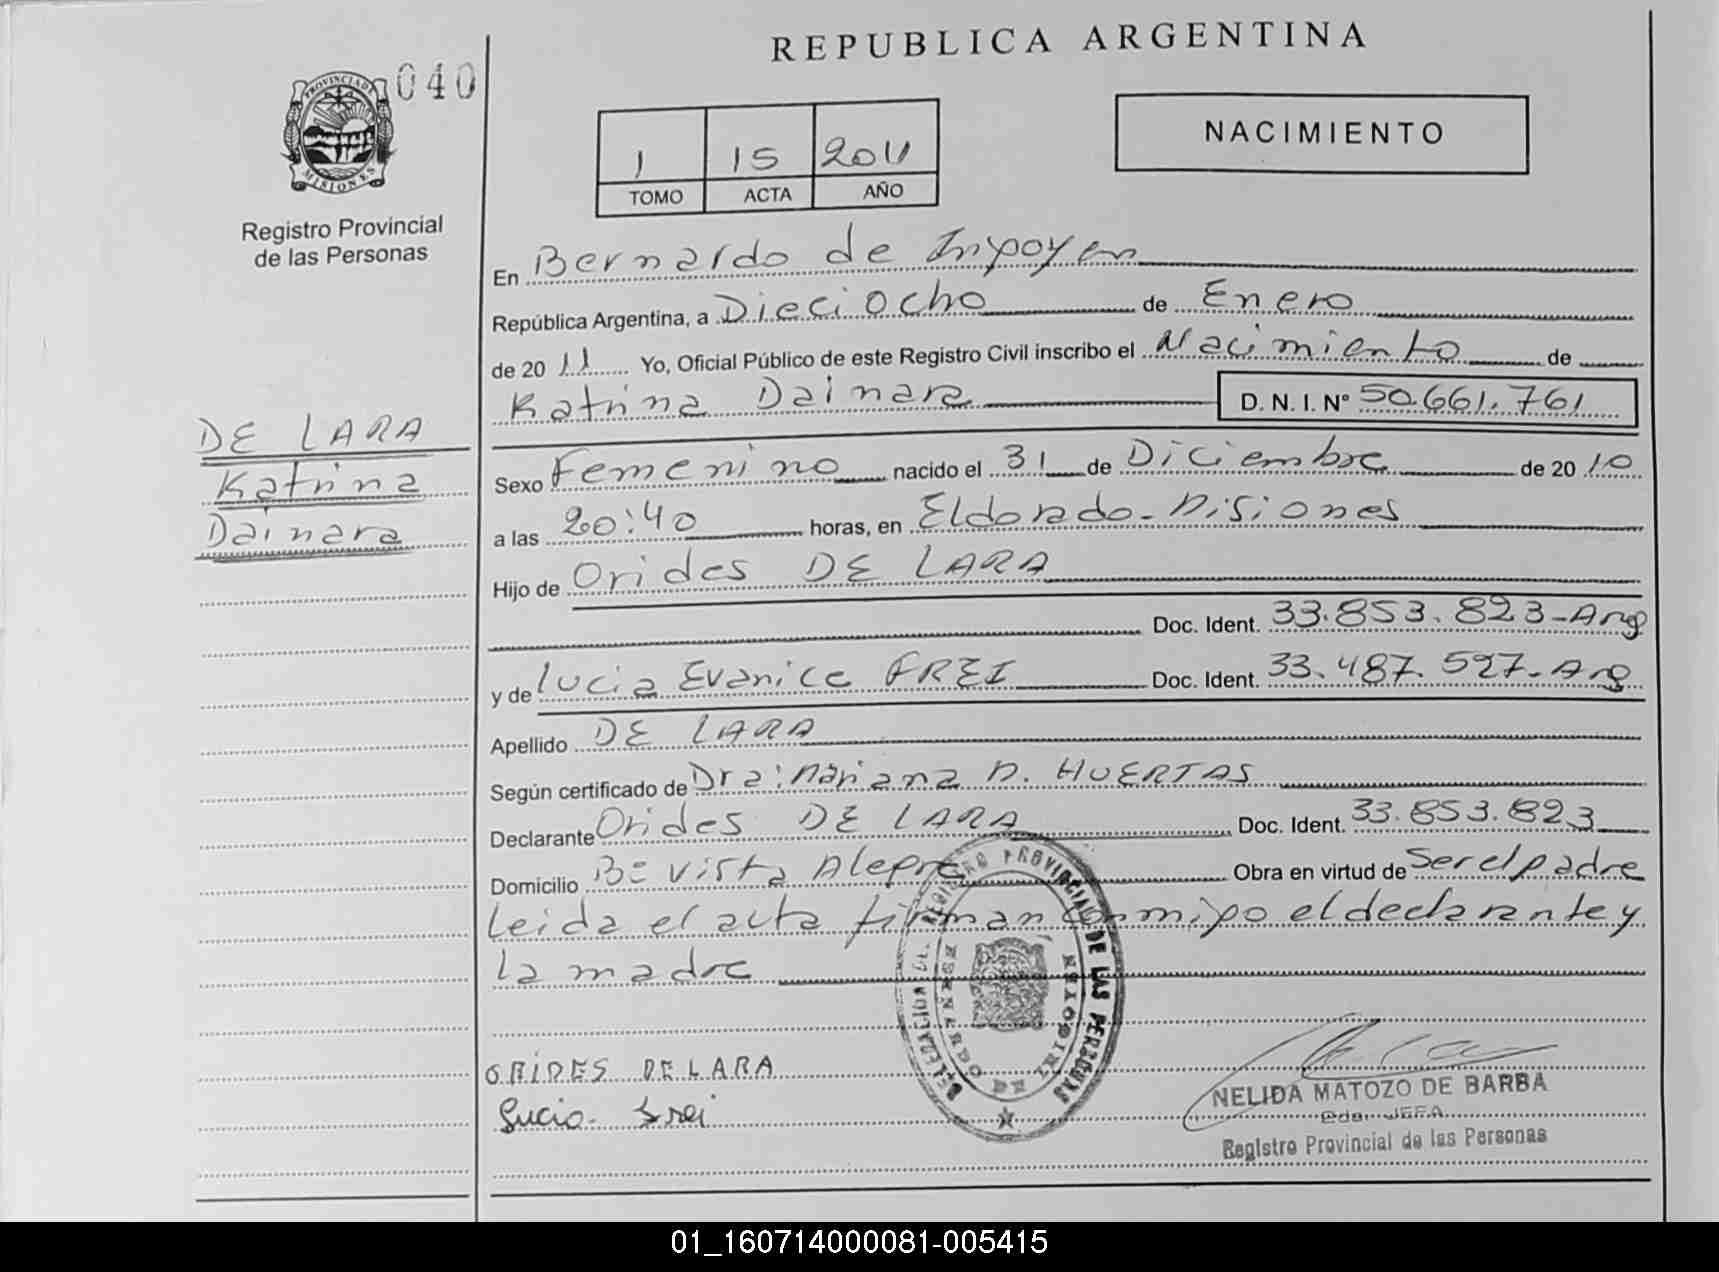 REPUBLICA ARGENTINA
040
PROVINCIA DE MISIONES
Registro Provincial
de las Personas
NACIMIENTO
1 15 2011
TOMO ACTA AÑO
DE LARA
Katrina
Dainara
En Bernardo de Irigoyen
República Argentina, a Dieciocho de Enero
de 2011 Yo, Oficial Público de este Registro Civil inscribo el Nacimiento de
Katrina Dainara D. N. I. N° 50.661.761
Sexo Femenino nacido el 31 de Diciembre de 2010
a las 20:40 horas, en Eldorado-Misiones
Hijo de Orides DE LARA
Doc. Ident. 33.853.823-Arg
y de Lucia Evanice FREI Doc. Ident. 33.487.527-Arg
Apellido DE LARA
Según certificado de Dra: Mariana M. HUERTAS
Declarante Orides DE LARA Doc. Ident. 33.853.823
Domicilio B= Vista Alegre Obra en virtud de Ser el padre
Leida el acta firman conmigo el declarante y
la madre
ORIDES DE LARA
Lucia Frei
DELEGACION DEL REGISTRO PROVINCIAL DE LAS PERSONAS
BERNARDO DE IRIGOYEN
NELIDA MATOZO DE BARBA
JEFA
Registro Provincial de las Personas
01_160714000081-005415